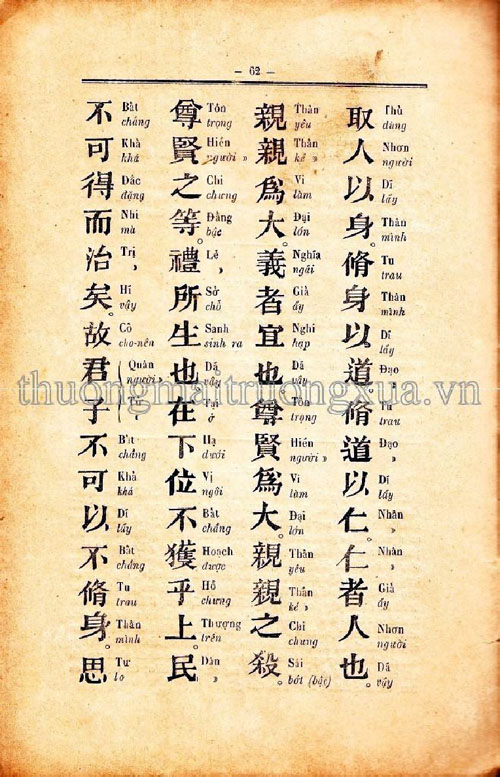 - 62 -
取人以身。脩身以道脩道以仁。仁者人也。
Thủ
dùng
Nhơn
người
Dĩ
lấy
Thân
mình
Tu
trau
Thân
mình
Dĩ
lấy
Đạo
»
Tu
trau
Đạo
»
Dĩ
lấy
Nhân
»
Nhân
»
Giả
ấy
Nhơn
người
Dã
vậy
親親爲大。義者宜也尊賢爲大。親親之殺。
Thân
yêu
Thân
kẻ »
Vi
làm
Đại
lớn
Nghĩa
ngãi
Giả
ấy
Nghi
hạp
Dã
vậy
Tôn
trọng
Hiền
người »
Vi
làm
Đại
lớn
Thân
yêu
Thân
kẻ »
Chi
chưng
Sái
bớt (bậc)
尊賢之等。禮所生也在下位不獲乎上。民
Tôn
trọng
Hiền
người »
Chi
chưng
Đẳng
bậc
Lễ
»
Sở
chỗ
Sanh
sinh ra
Dã
vậy
Tại
ở
Hạ
dưới
Vị
ngôi
Bất
chẳng
Hoạch
được
Hồ
chưng
Thượng
trên
Dân
»
不可得而治矣。故君子不可以不脩身。思
Bất
chẳng
Khả
khá
Đắc
đặng
Nhi
mà
Trị
»
Hĩ
vậy
Cố
cho-nên
Quân
người »
Tử
Bất
chẳng
Khả
khá
Dĩ
lấy
Bất
chẳng
Tu
trau
Thân
mình
Tư
lo
thuongmaitruongxua.vn